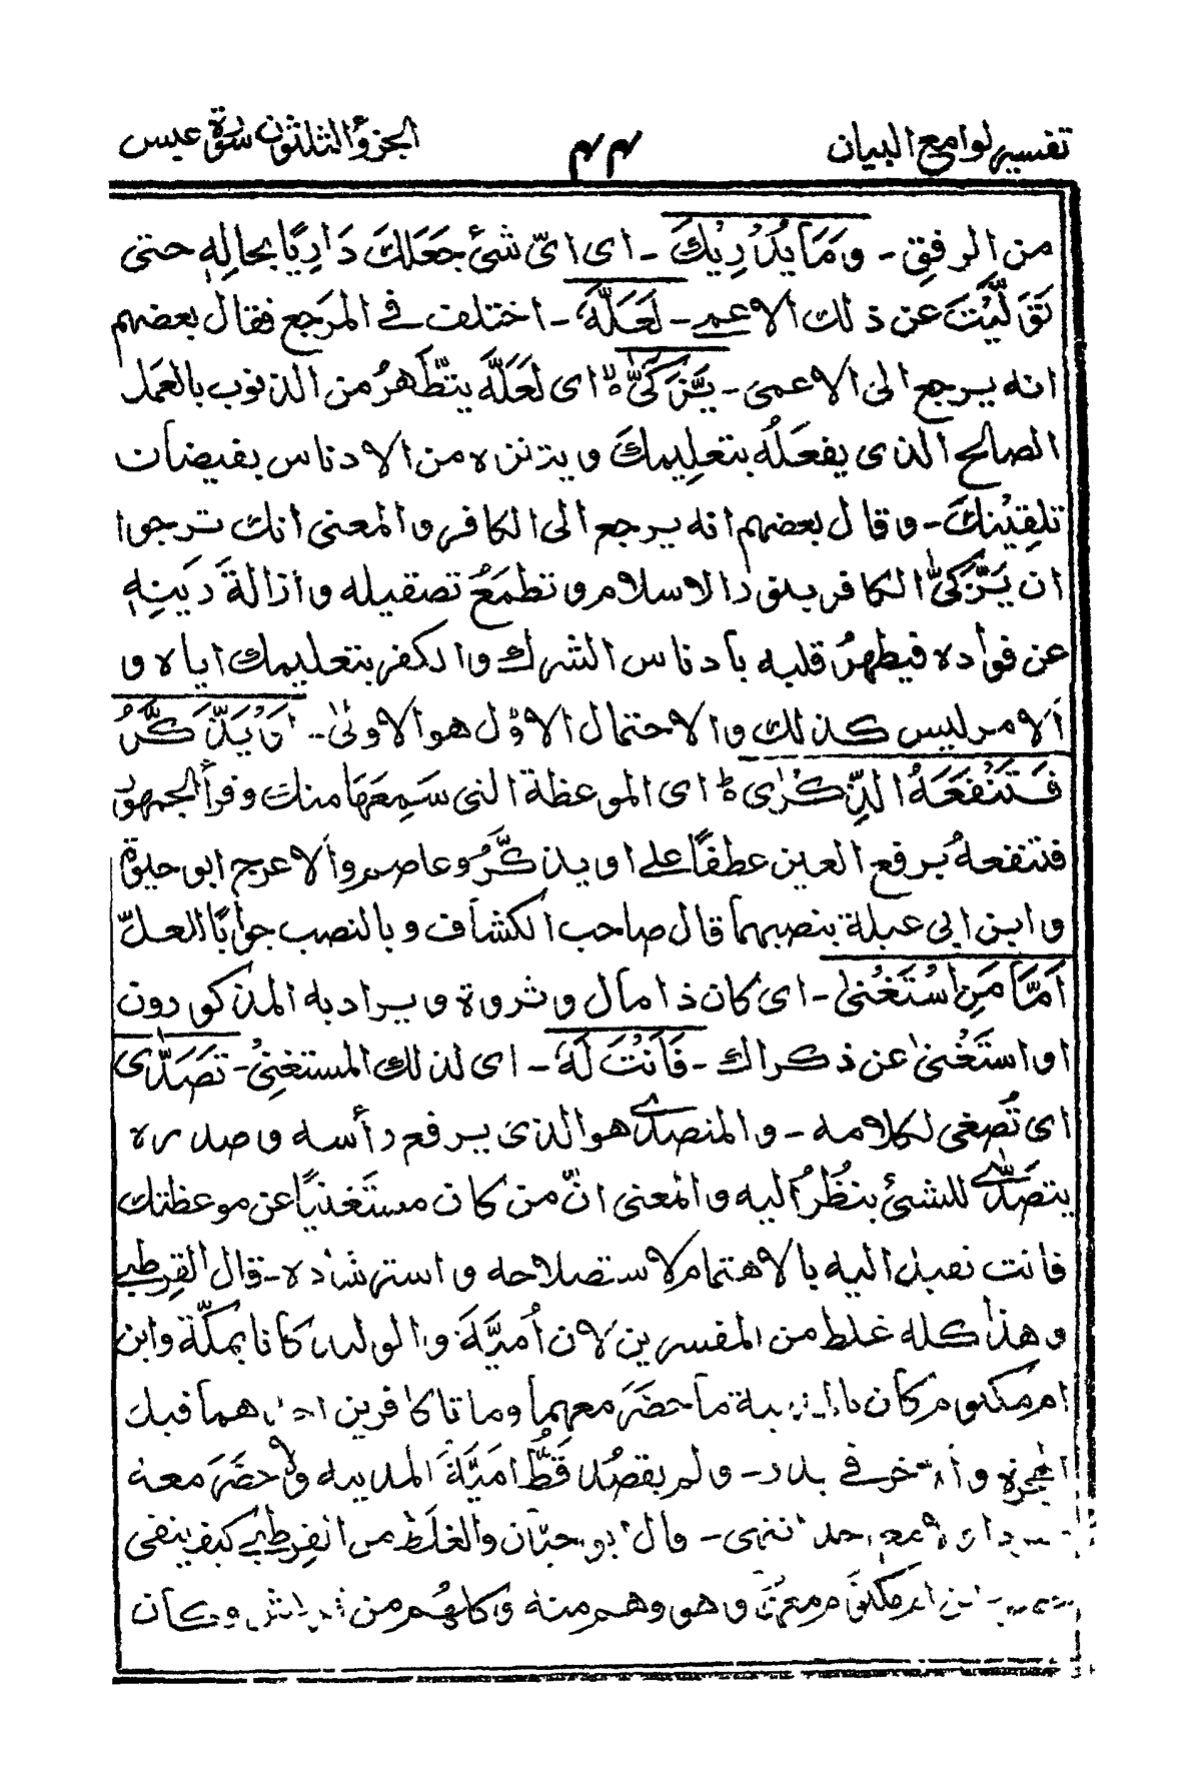 تفسير لوامع البيان ۴۴ الجزؤ الثلثون سورة عبس
من الرفق - وَمَا يُدْرِيْكَ - اى اىّ شئ جَعَلَكَ دَارِيًا بحالِهٖ حتى
تَوَلَّيْتَ عن ذلك الاعمى - لَعَلَّهٗ - اختلف فى المَرجَع فقال بعضهم
انه يرجع الى الاعمى - يَزَّكّٰىۙ اى لَعَلَّه يتطّهرُ من الذنوب بالعَمل
الصالح الذى يفعَلُه بتعلِيمكَ ويتنزه من الادناس بفيضان
تلقِيْنكَ - وقال بعضهم انه يرجع الى الكافر والمعنى انك ترجوا
ان يَزَّكّٰى الكافر بنور الاسلام وتطمَعُ تصقيله وازالةَ رَينِهٖ
عن فواده فيطهرُ قلبه بادناس الشرك والكفر بتعليمك اياه و
الامر ليس كذلك والاحتمال الاوّل هو الاولىٰ - اَوْ يَذَّكَّرُ
فَتَنْفَعَهُ الذِّكْرٰىؕ اى الموعظة التى سَمِعَهَا منك وقرأ الجمهور
فتنفعهُ برفع العين عطفًا على او يذكَّرُ وعاصم والاعرج ابو حيوة
وابن ابى عبلة بنصبهما قال صاحب الكشاف وبالنصب جوابًا للعلّ
اَمَّا مَنِ اسْتَغْنٰى - اى كان ذا مال وثروة ويراد به المذكورون
او استَغْنىٰ عن ذكراك - فَاَنْتَ لَهٗ - اى لذلك المستغنِىْ - تَصَدّٰى
اى تُصغى لكلامه - والمتصدّى هو الذى يرفع رأسه وصدره
يتصدّى للشئ ينظُرُ اليه والمعنى انّ من كان مستَغنيًا عن موعظتك
فانت تقبل اليه بالاهتمام لاستصلاحه واسترشاده - قال القرطبى
وهذا كله غلط من المفسرين لان اُميَّةَ والوليد كانا بمكّة وابن
ام مكتوم كان بالمدينة ما حضَرَ معهما وماتا كافرين احدهما قبل
الهجرة والآخر فى بدر - ولم يقصُد قَطُّ اميَّةَ المدينه ولا حضَرَ معه
مفردا ولا مع احد انتهى - وقال ابو حيّان والغلَط من القرطبى كيف ينفى
حضور ابن ام مكتوم معهما وهو وهم منه وكلهُم من قريش وكان